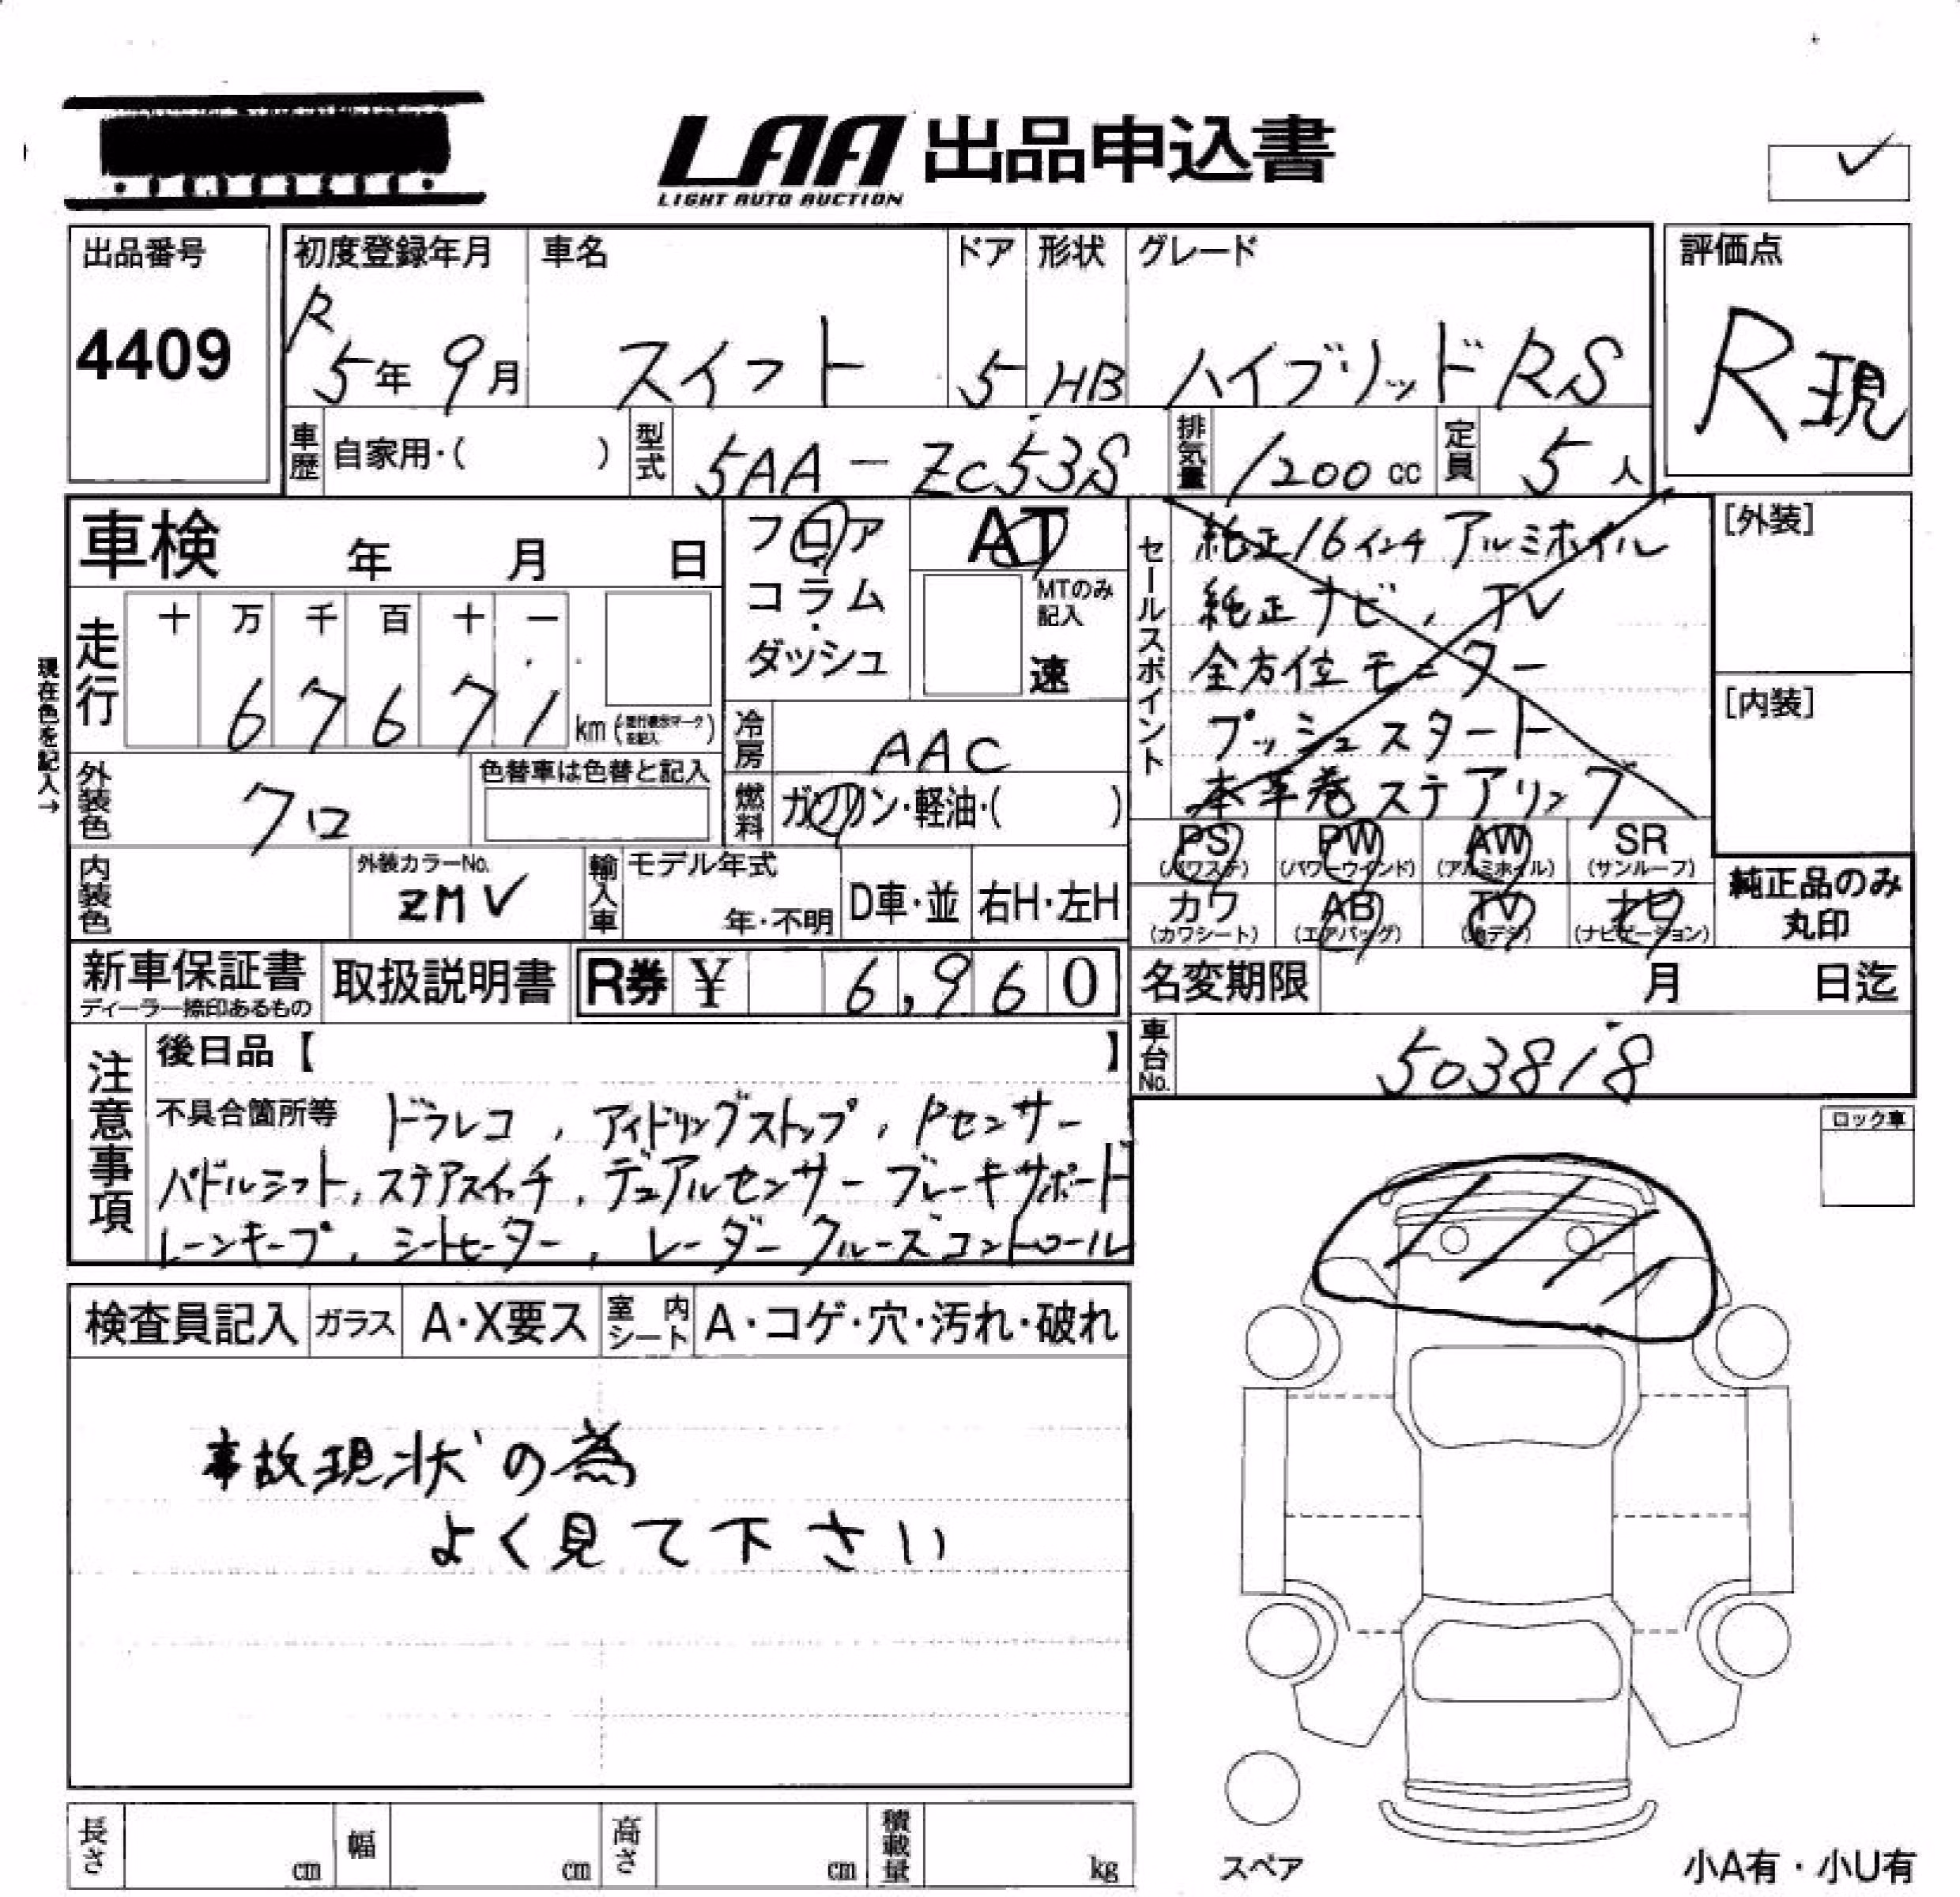 LAA 出品申込書
LIGHT AUTO AUCTION
出品番号
4409
初度登録年月
R5年9月
車名
スイフト
ドア
5
形状
HB
グレード
ハイブリッドRS
評価点
R現
車歴 自家用・( )
型式 5AA-ZC53S
排気量 1200cc
定員 5人
車検 年 月 日
フロア・コラム・ダッシュ
AT
MTのみ記入
速
走行
十 万 千 百 十 一
6 7 6 7 1 km
現在色を記入→
外装色 クロ
色替車は色替と記入
冷房 AAC
燃料 ガソリン・軽油・( )
内装色
外装カラーNo.
ZMV
輸入車
モデル年式
年・不明
D車・並
右H・左H
セールスポイント
純正16インチアルミホイル
純正ナビ、TV
全方位モニター
プッシュスタート
本革巻ステアリング
[外装]
[内装]
PS
(パワステ)
PW
(パワーウインド)
AW
(アルミホイル)
SR
(サンルーフ)
カワ
(カワシート)
AB
(エアバッグ)
TV
(地デジ)
ナビ
(ナビゲーション)
純正品のみ
丸印
新車保証書
ディーラー捺印あるもの
取扱説明書
R券 ¥ 6,960
名変期限 月 日迄
車台No. 503818
注意事項
後日品【 】
不具合箇所等 ドラレコ、アイドリングストップ、Pセンサー
パドルシフト、ステアスイッチ、デュアルセンサーブレーキサポート
レーンキープ、シートヒーター、レーダークルーズコントロール
ロック車
検査員記入
ガラス
A・X要ス
室内シート
A・コゲ・穴・汚れ・破れ
事故現状の為
よく見て下さい
長さ cm
幅 cm
高さ cm
積載量 kg
スペア
小A有・小U有